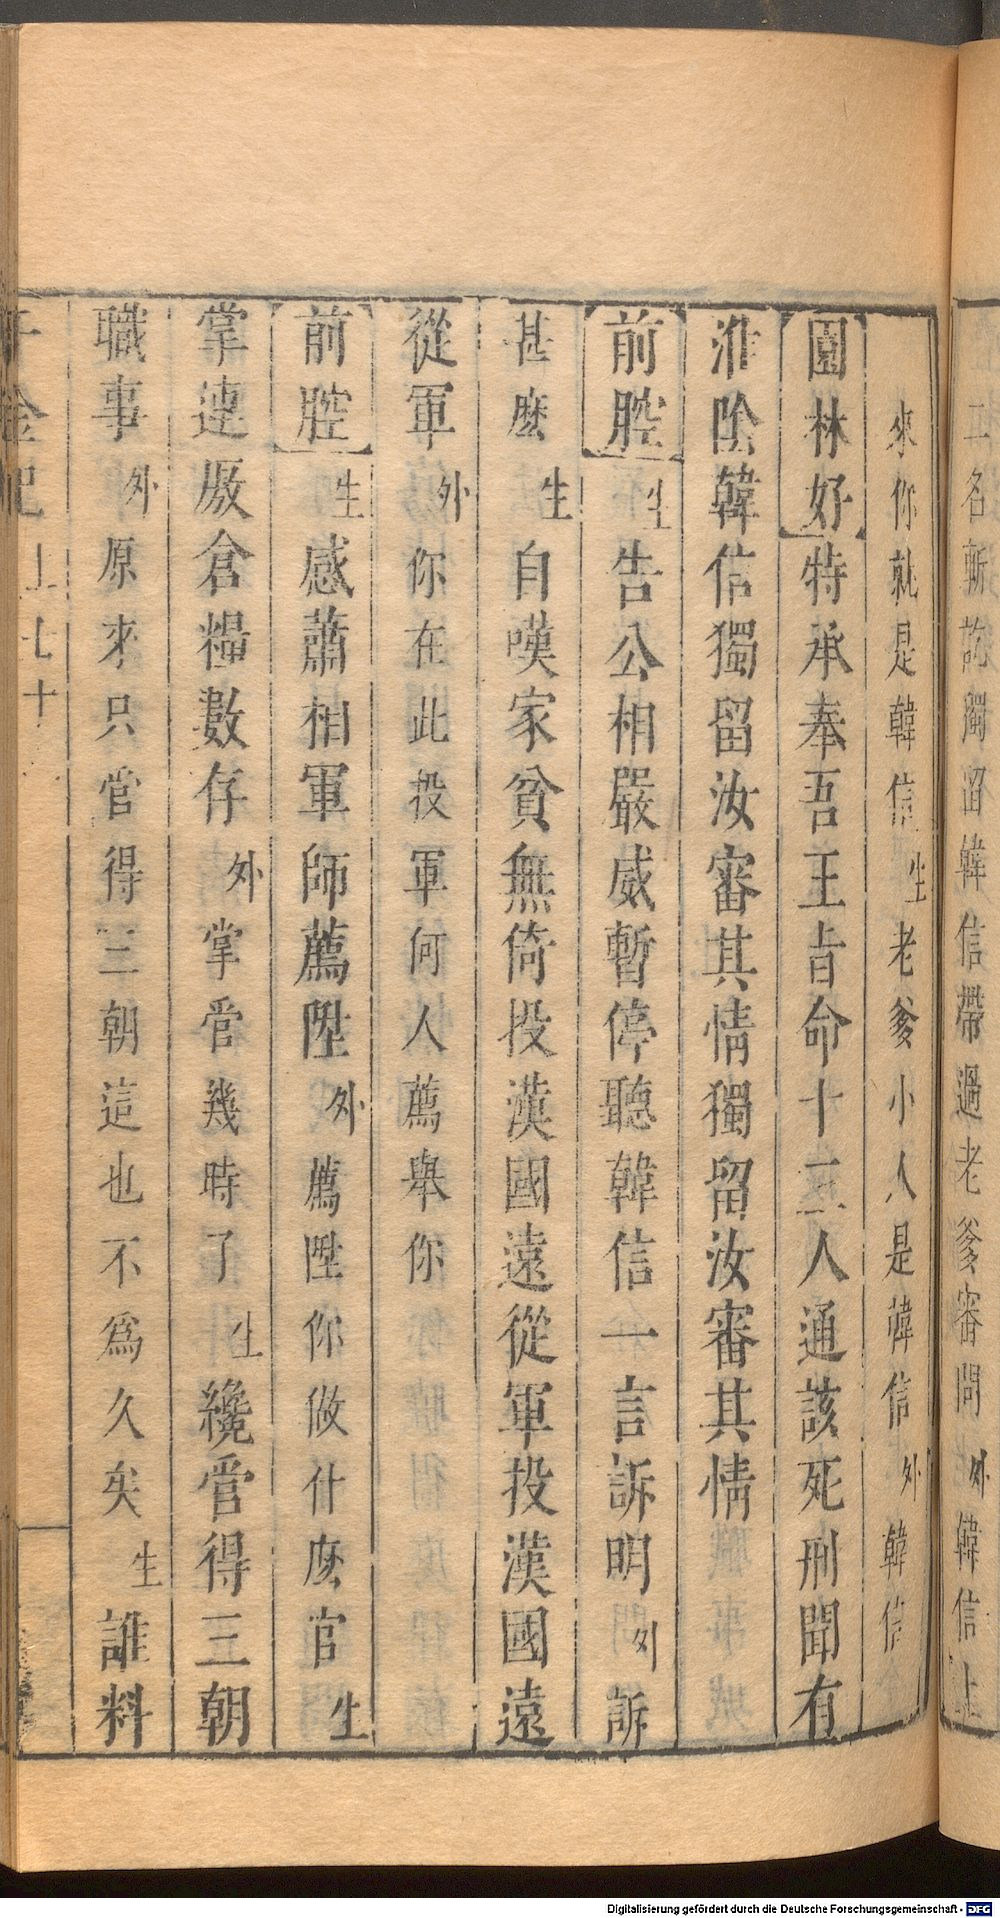 二名斬訖獨留韓信帶過老爹審問外韓信上
來你就是韓信生老爹小人是韓信外韓信
園林好特承奉吾王旨命十三人通該死刑聞有
淮陰韓信獨留汝審其情獨留汝審其情
前腔生告公相嚴威暫停聽韓信一言訴明外訴
甚麽生自嘆家貧無倚投漢國遠從軍投漢國遠
從軍外你在此投軍何人薦舉你
前腔生感蕭相軍師薦陞外薦陞你做什麽官生
掌連厫倉糧數存外掌管幾時了生纔管得三朝
職事外原來只管得三朝這也不爲久矣生誰料
千金記 上 七十
Digitalisierung gefördert durch die Deutsche Forschungsgemeinschaft - DFG